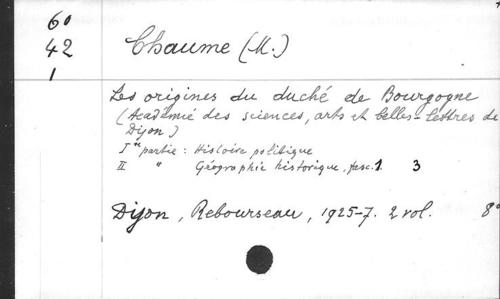 60
42
1
Chaume (M.)
Les origines du duché de Bourgogne
(Académie des sciences, arts et belles-lettres de
Dijon)
Ire partie : Histoire politique
II " Géographie historique, fasc. 1 3
Dijon, Rebourseau, 1925-7. 2 vol. 8°